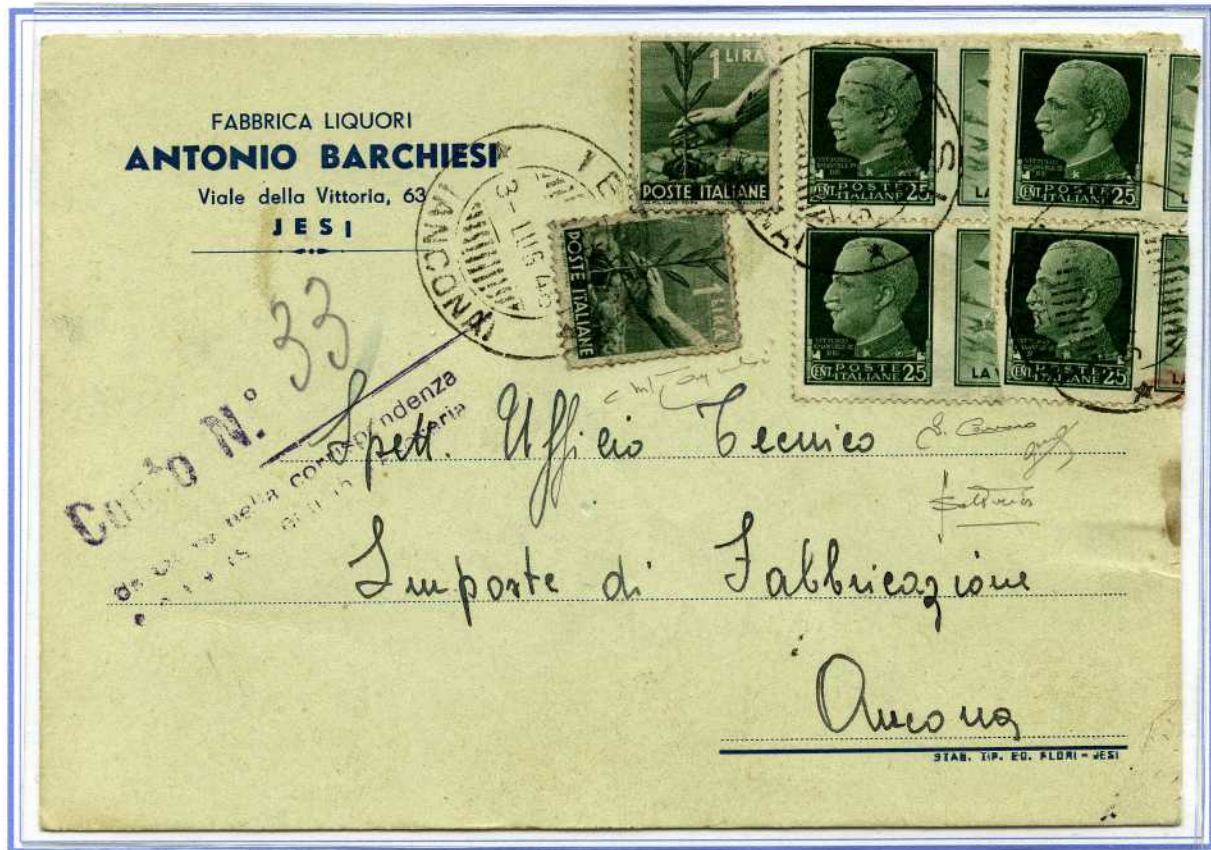 FABBRICA LIQUORI
ANTONIO BARCHIESI
Viale della Vittoria, 63
JESI
1 LIRA
POSTE ITALIANE
POSTE ITALIANE
1 LIRA
CENT. POSTE ITALIANE 25
CENT. POSTE ITALIANE 25
CENT. POSTE ITALIANE 25
LA V
CENT. POSTE ITALIANE 25
LA
(ANCONA)
3 - LUG 46
Conto N.° 33
nella corrispondenza
Spett. Ufficio Tecnico
Imposte di Fabbricazione
Ancona
STAB. TIP. ED. FLORI - JESI